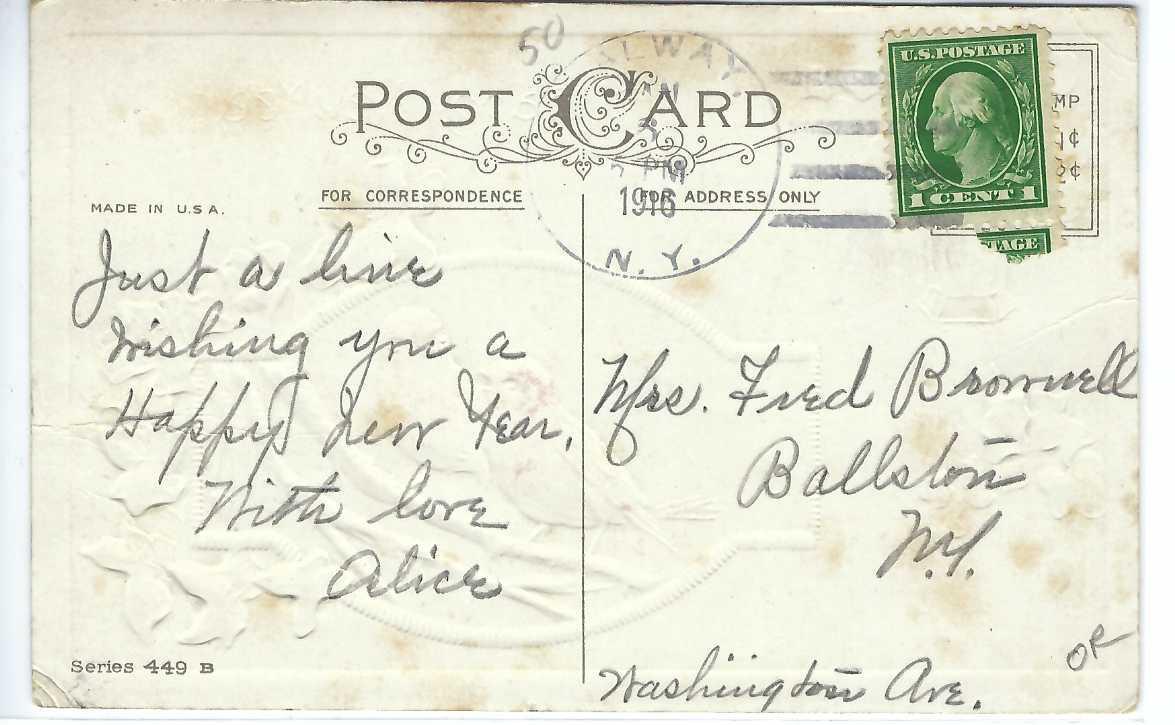 50
ALWAY
N. Y.
5
PM
1916
POST CARD
U.S. POSTAGE
1 CENT 1
MP
1¢
2¢
TAGE
MADE IN U.S.A.
FOR CORRESPONDENCE
FOR ADDRESS ONLY
Just a line
Wishing you a
Happy New Year.
With love
Alice
Mrs. Fred Brownell
Ballston
N.Y.
Washington Ave.
Series 449 B